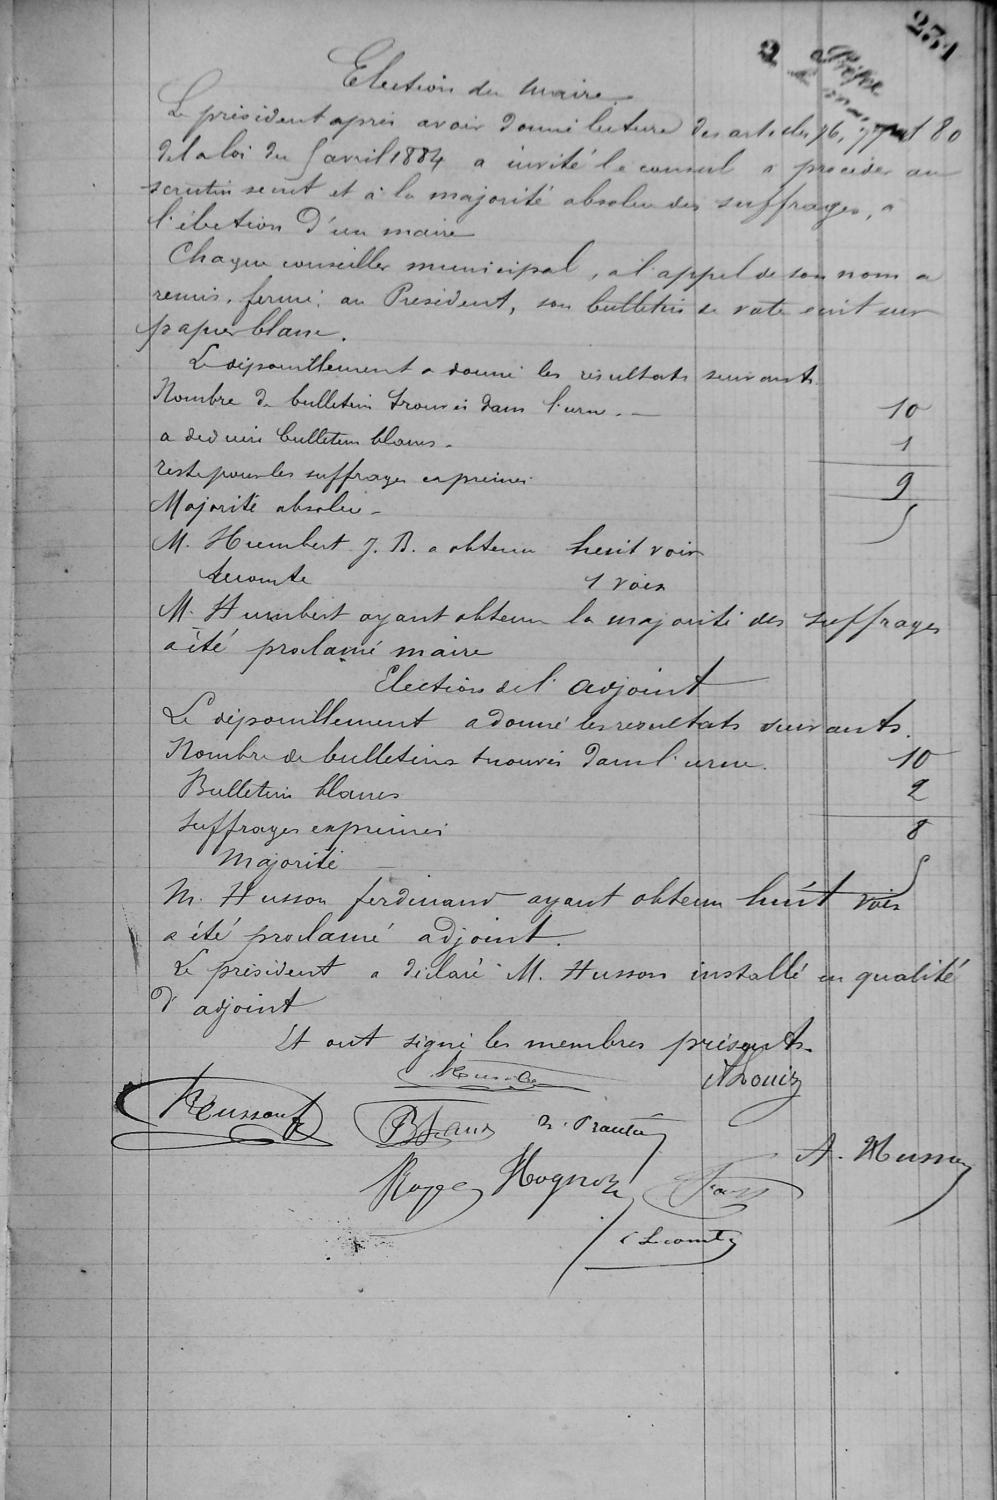 231
2
Election du maire
Le président après avoir donné lecture des articles 76, 77 et 80
de la loi du 5 avril 1884 a invité le conseil a procéder au
scrutin secret et à la majorité absolue des suffrages, a
l'élection d'un maire
Chaque conseiller municipal, a l'appel de son nom a
remis, fermé, au Président, son bulletin de vote écrit sur
papier blanc.
Le dépouillement a donné les résultats suivants.
Nombre de bulletins trouvés dans l'urne. — 10
a déduire bulletin blancs - 1
reste pour les suffrages exprimés 9
Majorité absolue - 5
M. Humbert J. B. a obtenu huit voix
Lecomte 1 voix
M. Humbert ayant obtenu la majorité des suffrages
a été proclamé maire
Election de l'adjoint
Le dépouillement a donné les résultats suivants.
Nombre de bulletins trouvés dans l'urne. 10
Bulletin blancs 2
suffrages exprimés 8
Majorité 5
M. Husson ferdinand ayant obtenu huit voix
a été proclamé adjoint.
Le président a déclaré M. Husson installé en qualité
d'adjoint
Et ont signé les membres présents.
A Louis
Husson f
A. Husson
Hognon
C Lecomte